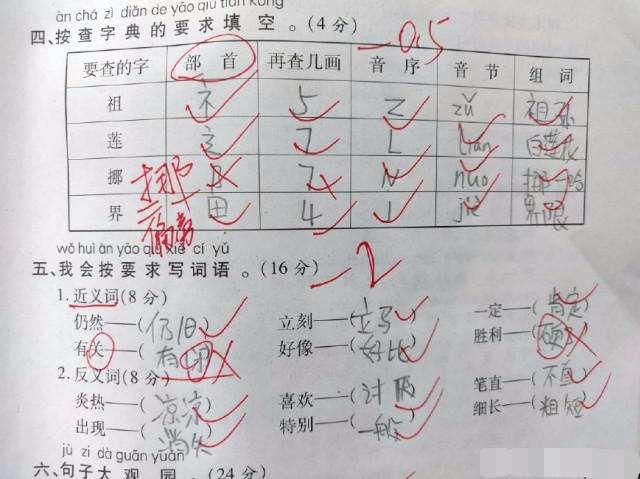 àn chá zì diǎn de yāo qiú tián kòng
四、按查字典的要求填空。(4分) -0.5
要查的字 部首 再查几画 音序 音节 组词
祖 礻 5 Z zǔ 祖孙
莲 辶 7 L lián 白莲花
挪 7 N nuó 挪
界 田 4 J jiè 界限
挪
偏旁
wǒ huì àn yāo qiú xiě cí yǔ
五、我会按要求写词语。(16分) -2
1.近义词(8分)
仍然——(仍旧) 立刻——(立马) 一定——(肯定)
有关——(有闭) 好像——(好比) 胜利——(
2.反义词(8分)
炎热——(凉凉) 喜欢——(讨厌) 笔直——(不直)
出现——(消失) 特别——(一般) 细长——(粗短)
jù zi dà guān yuán
六、句子大观园。(24分)